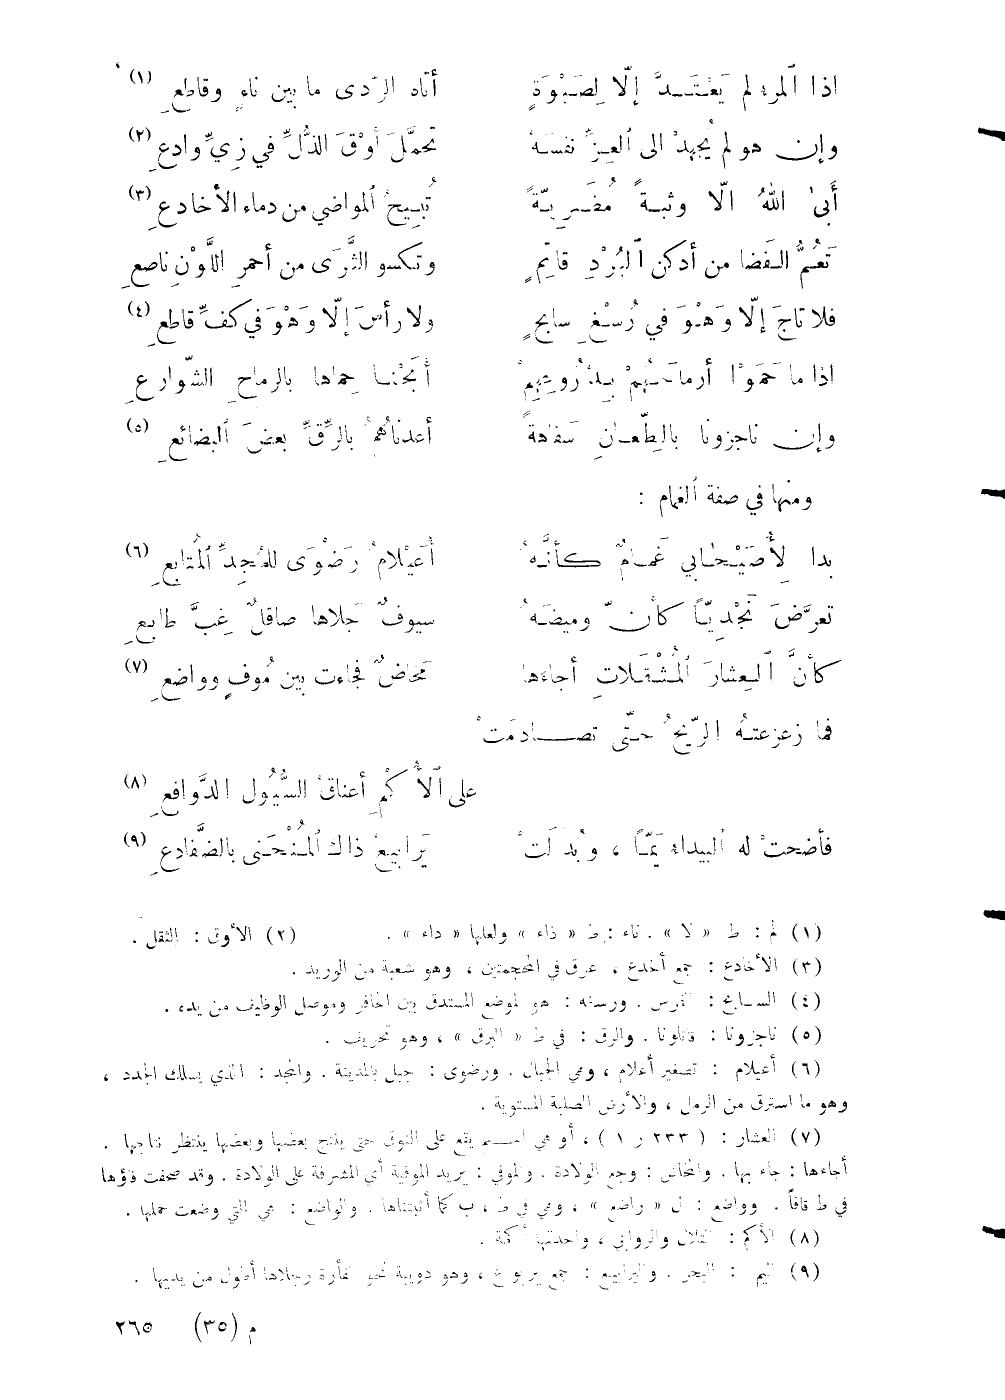 اذا ٱلمرء لم يَعْتَـدَّ إلّا لِصَبْوَةٍ أتاه الرّدى ما بين ناءٍ وقاطعِ (١)
وإن هو لم يُجهِدْ الى العِزِّ نفسَهُ تحمَّلَ أوْقَ الذُّلِّ في زِيِّ وادعِ (٢)
أَبىٰ اللهُ الّا وثبةً مُضَريّةً تُبيحُ ٱلمواضي من دماء الأخادعِ (٣)
تَعُمُّ الفَضا من أدكن ٱلبُرْدِ قاتِمٍ وتكسو الثَّرَى من أحمرِ اللَّوْنِ ناصعِ
فلا تاجَ إلّا وَهْوَ في رُسْغِ سابحٍ ولا رأسَ إلّا وَهْوَ في كفِّ قاطعِ (٤)
اذا ما حَمَوْا أرماحَهُمْ بِدُرُوعِهِمْ أَبَحْنا حِماها بالرماحِ الشّوارعِ
وإن ناجزونا بالطِّعانِ سَفاهةً أعدناهُمُ بالرِّقِّ بعضَ ٱلبضائعِ (٥)
ومنها في صفة ٱلغمام :
بدا لِأُصَيْحابي غَمامٌ كأنَّهُ أُعَيْلامُ رَضْوَى للمُجِدِّ ٱلمُتابعِ (٦)
تعرَّضَ نَجْديّاً كأنّ وميضَهُ سيوفٌ جَلاها صاقلٌ غِبَّ طابعِ
كأنَّ ٱلعِشارَ ٱلمُثْقَلاتِ أجاءَها مَخاضٌ فجاءت بين مُوفٍ وواضعِ (٧)
فما زعزعتهُ الرّيحُ حتّى تصادمَتْ
على ٱلأُكْمِ أعناقُ السُّيُولِ الدَّوافعِ (٨)
فأضحتْ له ٱلبيداء يَمّاً ، وبُدلَتْ يَرابيعُ ذاك ٱلمُنْحَنى بالضَّفادعِ (٩)
(١) لم : ط « لا » . ناء : ط « ذاء » ولعلها « داء » . (٢) الأوق : الثقل .
(٣) الأخادع : جمع أخدع ، عرق في المحجمتين ، وهو شعبة من الوريد .
(٤) السابح : الفرس . ورسغه : هو الموضع المستدق بين الحافر وموصل الوظيف من يده .
(٥) ناجزونا : قاتلونا . والرق : في ط « البرق » ، وهو تحريف .
(٦) أعيلام : تصغير أعلام ، وهي الجبال . ورضوى : جبل بالمدينة . والمجد : الذي يسلك الجدد ،
وهو ما استرق من الرمل ، والأرض الصلبة المستوية .
(٧) العشار : ( ٢٣٣ ر ١ ) ، أو هي اسم يقع على النوق حتى ينتج بعضها وبعضها ينتظر نتاجها .
أجاءها : جاء بها . والمخاض : وجع الولادة . والموفي : يريد الموفية أي المشرفة على الولادة . وقد صحفت فاؤها
في ط قافاً . وواضع : ل « راضع » ، وهي في ط ، ب كما أثبتناها . والواضع : هي التي وضعت حملها .
(٨) الأكم : التلال والروابي ، واحدتها أكمة .
(٩) اليم : البحر . واليرابيع : جمع يربوع ، وهو دويبة نحو الفأرة رجلاها أطول من يديها .
م (٣٥) ٢٦٥